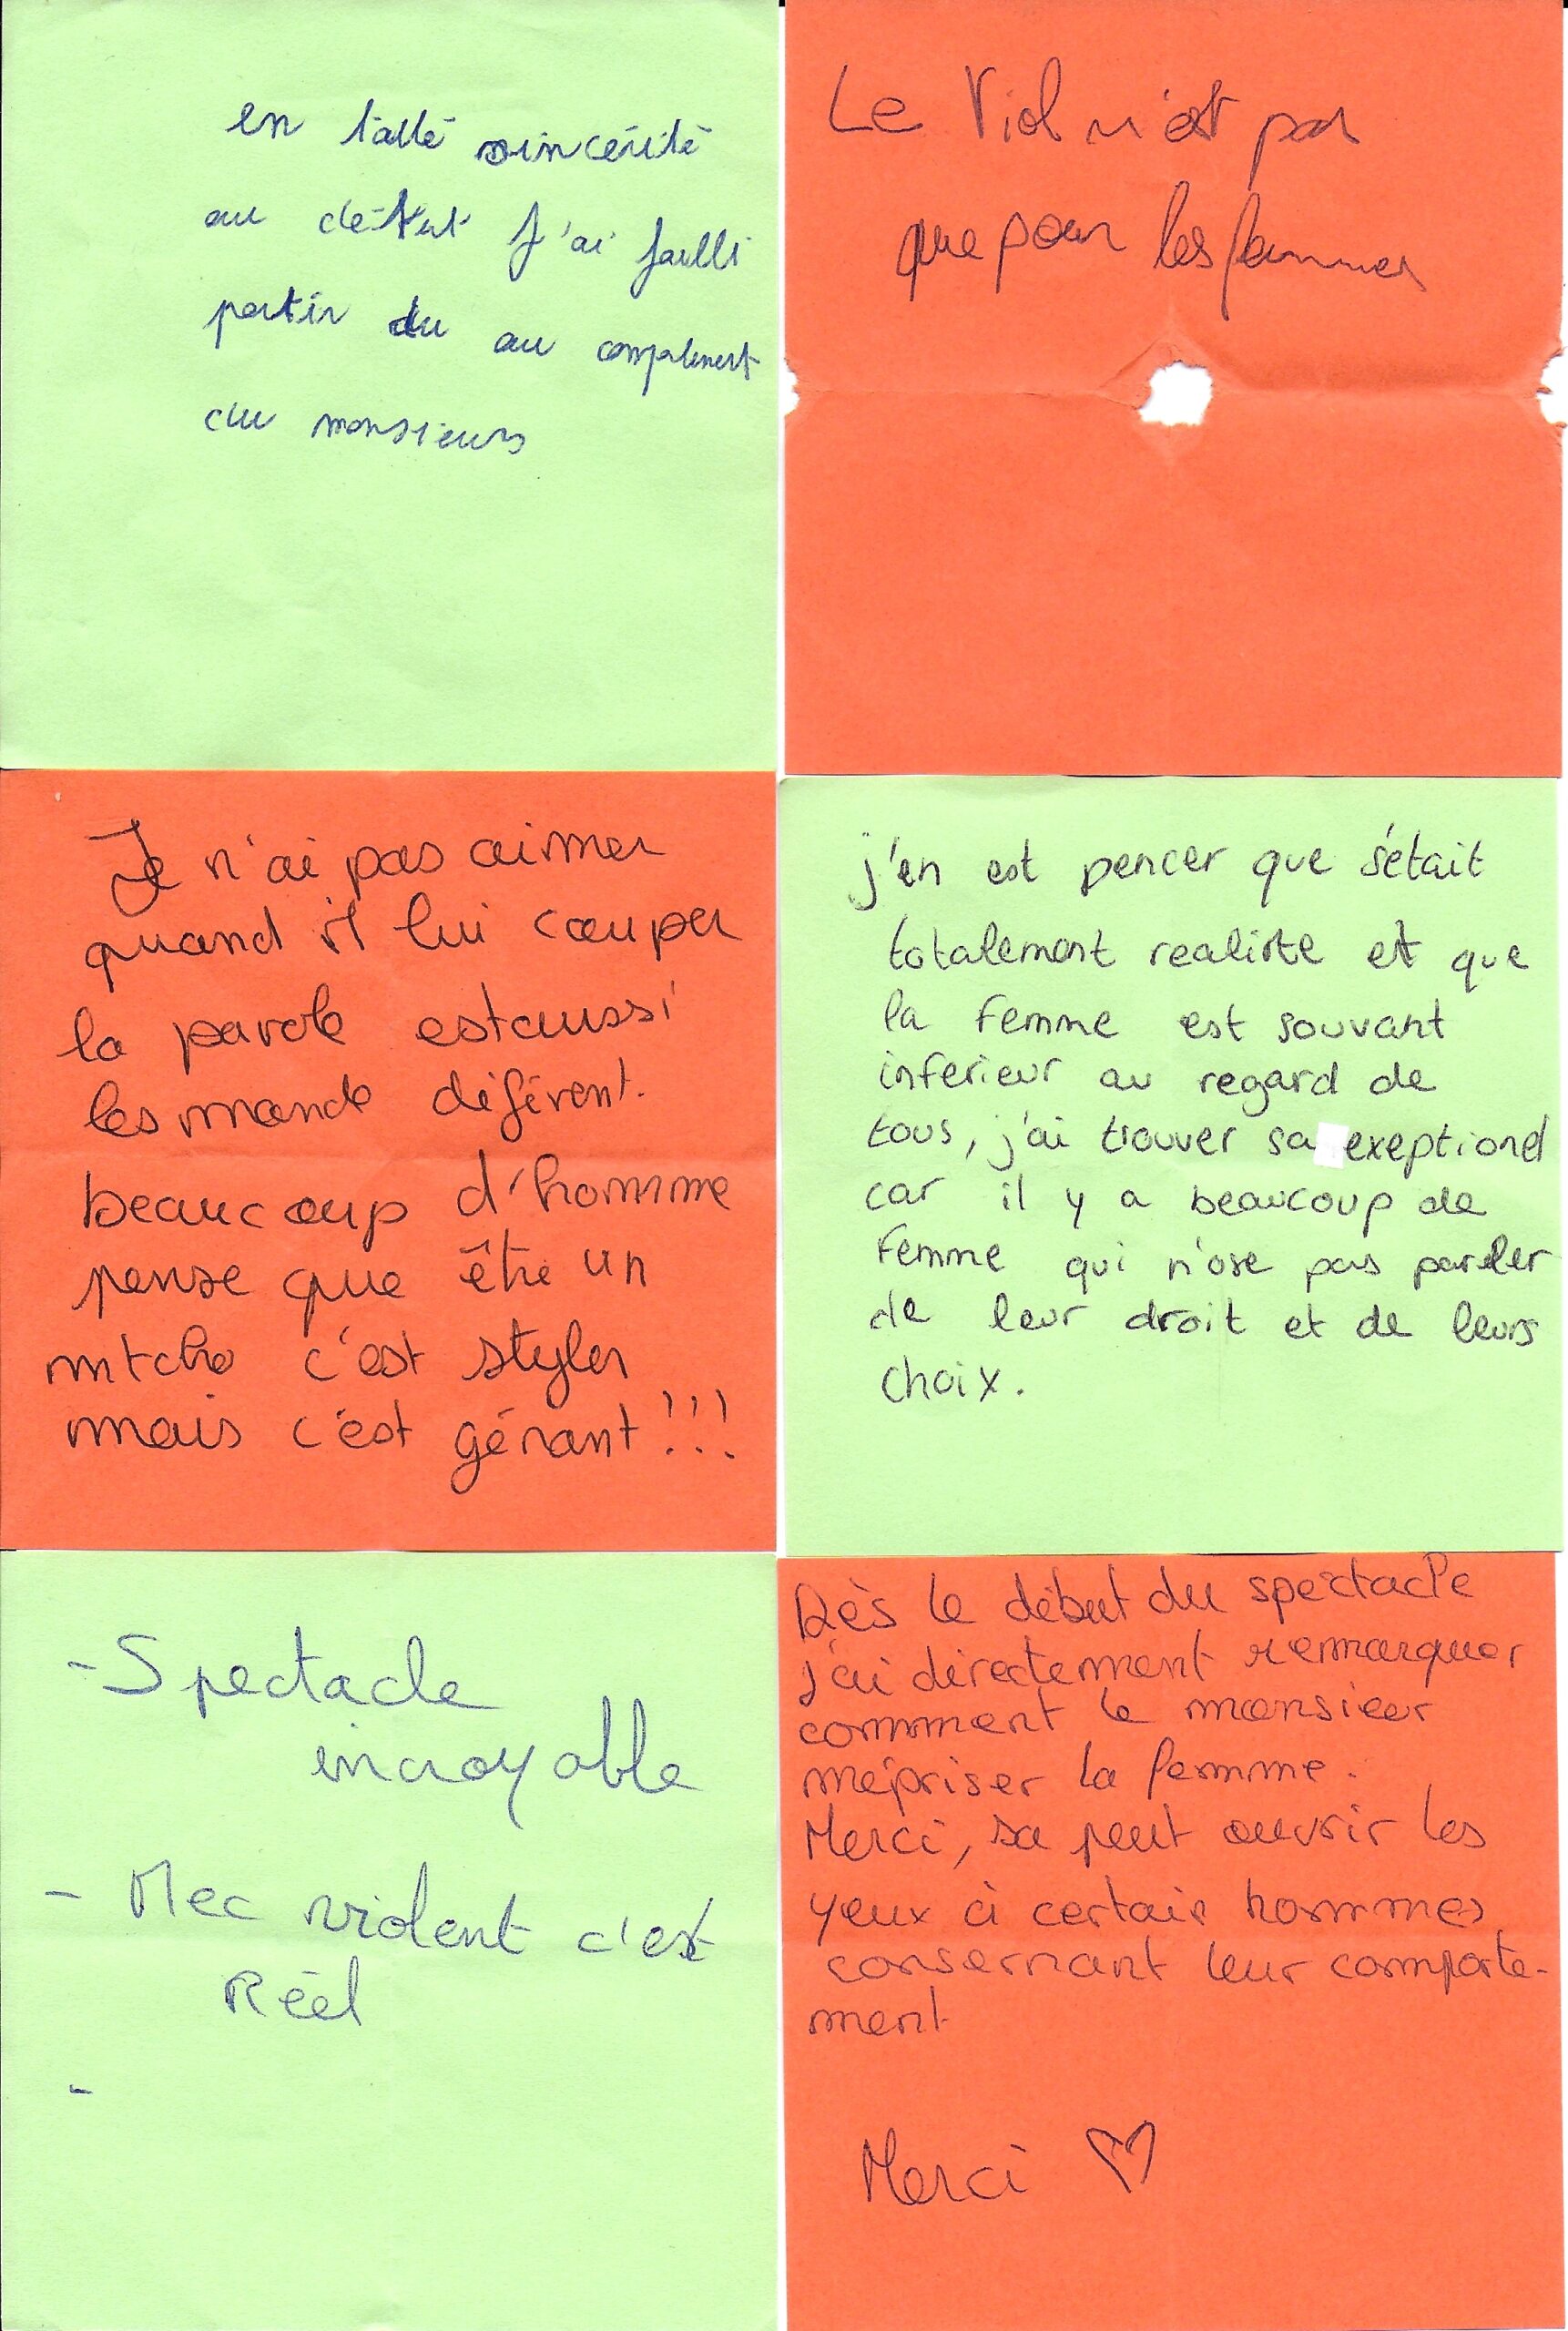 en tatte sincérité
au début j'ai failli
partir du au
du monsieurs
Le Viol n'est pas
que pour les femmes
Je n'ai pas aimer
quand il lui couper
la parole estaussi
les monde diférent.
beaucoup d'homme
pense que être un
mtcho c'est styler
mais c'est génant!!!
j'en est pencer que s'était
totalement realiste et que
la femme est souvant
inferieur au regard de
tous, j'ai trouver sa exeptionel
car il y a beaucoup de
femme qui n'ose pas parler
de leur droit et de leurs
choix.
- Spectacle
incroyable
- Mec violent c'est
Réel
-
Dès le début du spectacle
j'ai directement remarquer
comment le monsieur
mépriser la femme.
Merci, sa peut ouvrir les
yeux à certain hommes
consernant leur comporte-
ment
Merci ♡